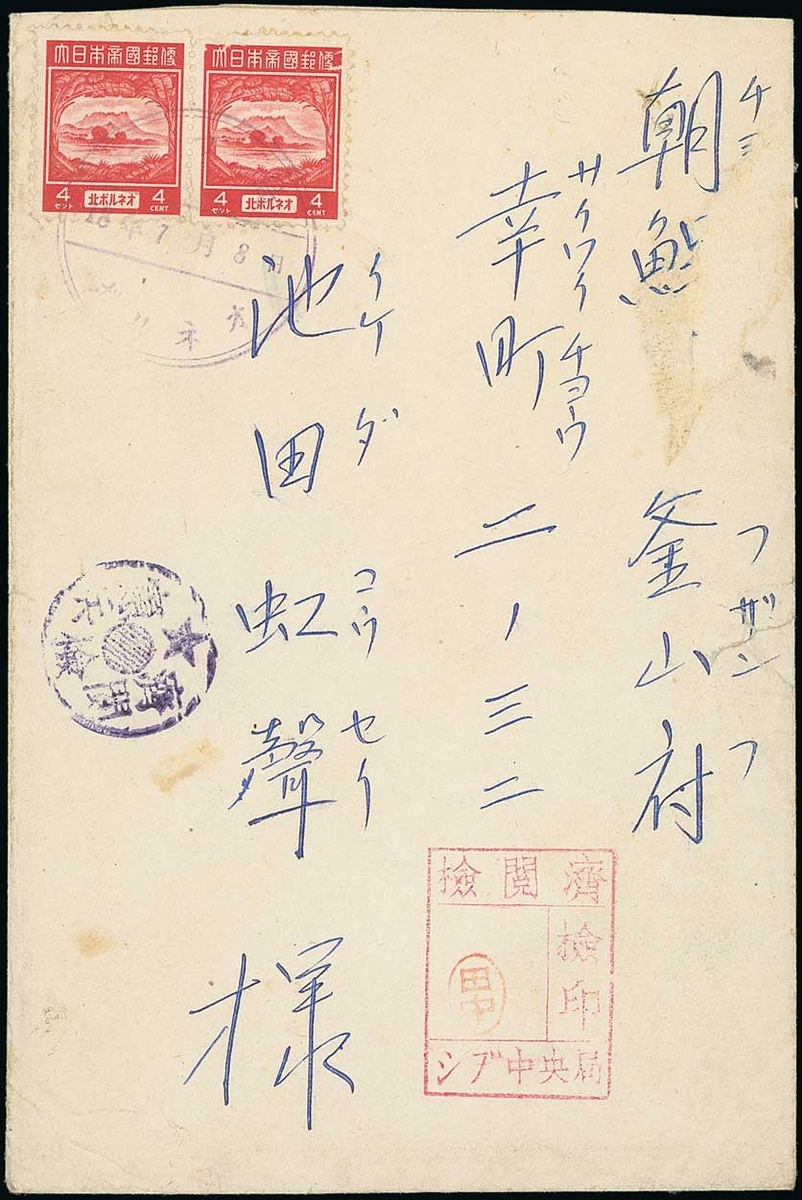 大日本帝國郵便
大日本帝國郵便
4 セント 北ボルネオ 4 CENT
4 セント 北ボルネオ 4 CENT
年7月8日
ルネオ
朝鮮 釜山府
フザンフ
幸町二ノ三二
サイワイチョウ
池田虹聲様
イケダ コウセイ
檢閲濟
檢印
田中
シブ中央局
憲兵檢閲濟